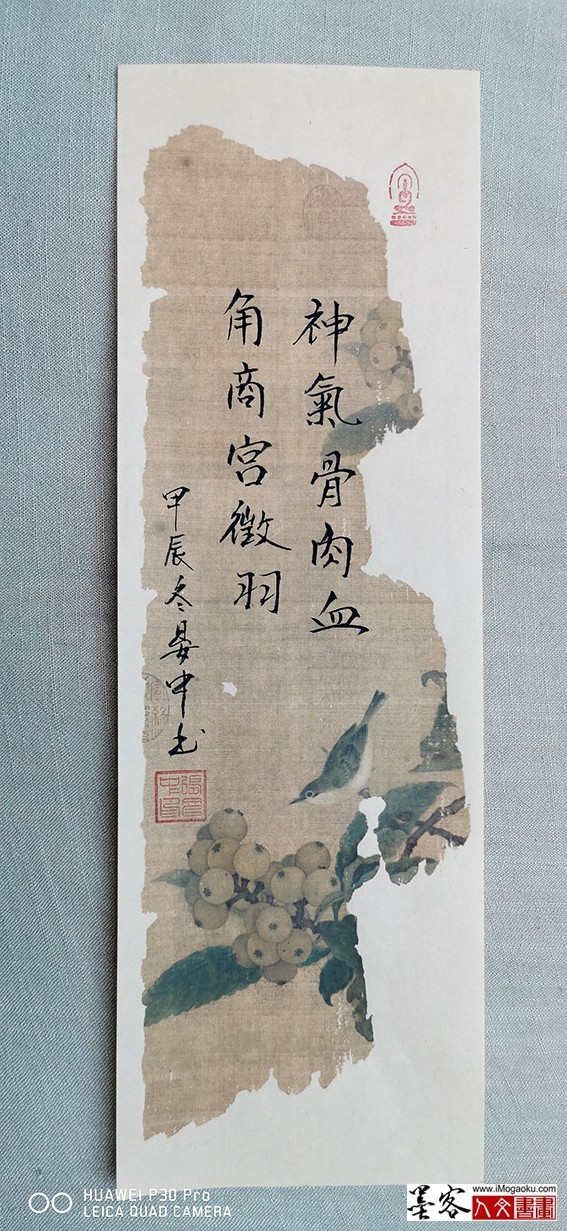 神氣骨肉血
角商宫徵羽
甲辰冬晏中书
HUAWEI P30 Pro
LEICA QUAD CAMERA
墨客
www.iMogaoku.com
人文書畫